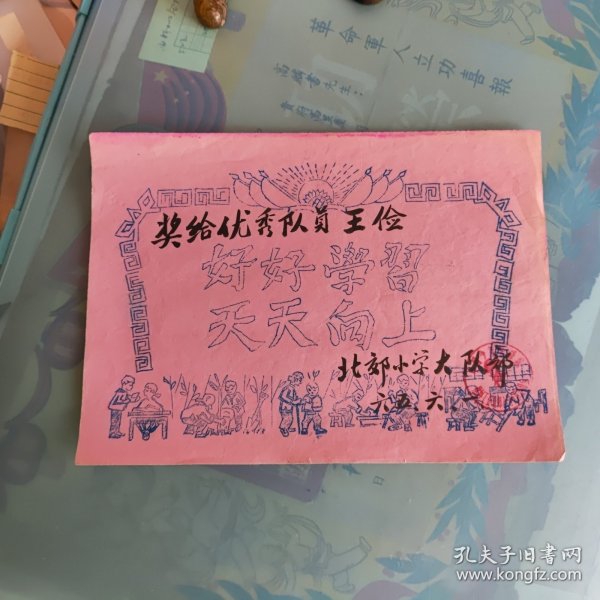 革命軍人立功喜報
奖给优秀队員王俭
好好學習
天天向上
北郊小学大队部
六五.六.一
孔夫子旧書网
www.kongfz.com